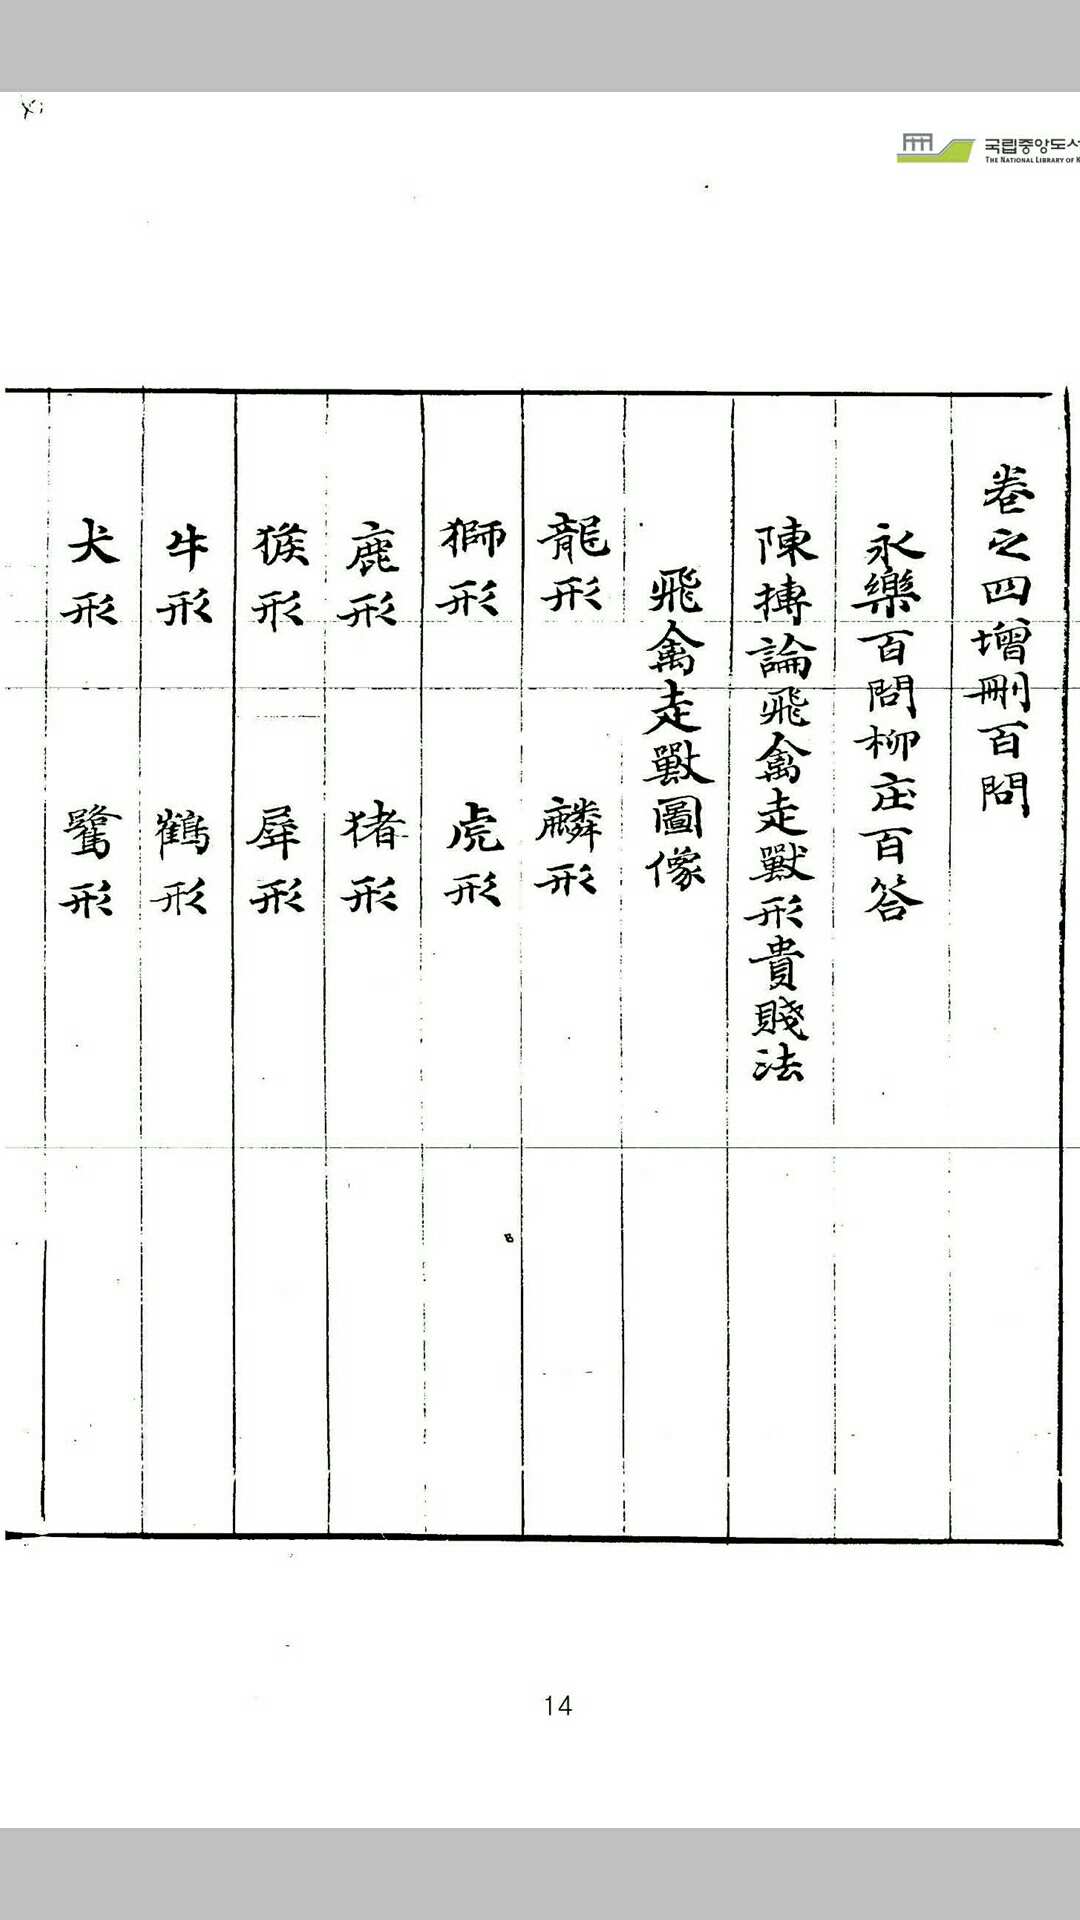 국립중앙도서
THE NATIONAL LIBRARY OF K
卷之四增刪百問
永樂百問柳庄百答
陳摶論飛禽走獸形貴賤法
飛禽走獸圖像
龍形 麟形
獅形 虎形
鹿形 猪形
猴形 犀形
牛形 鶴形
犬形 鷺形
14